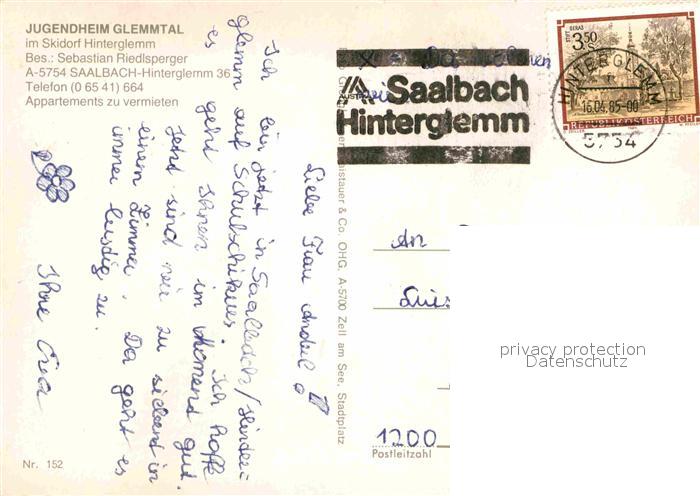 JUGENDHEIM GLEMMTAL
im Skidorf Hinterglemm
Bes.: Sebastian Riedlsperger
A-5754 SAALBACH-Hinterglemm 36
Telefon (0 65 41) 664
Appartements zu vermieten
Liebe Frau
Ich bin jetzt in Saalbach/Hinter=
glemm auf Schulschikurs. Ich hoffe
es geht Ihnen im Moment gut.
Jetzt sind wir zu siebent in
einem Zimmer. Da geht es
immer lustig zu.
Ihre
Nr. 152
& Co. OHG, A-5700 Zell am See, Stadtplatz
AUSTRIA
Saalbach
Hinterglemm
STIFT GERAS
3.50
S
REPUBLIK ÖSTERREICH
HINTERGLEMM
16.04.85-00
5754
An
1200
Postleitzahl
privacy protection
Datenschutz